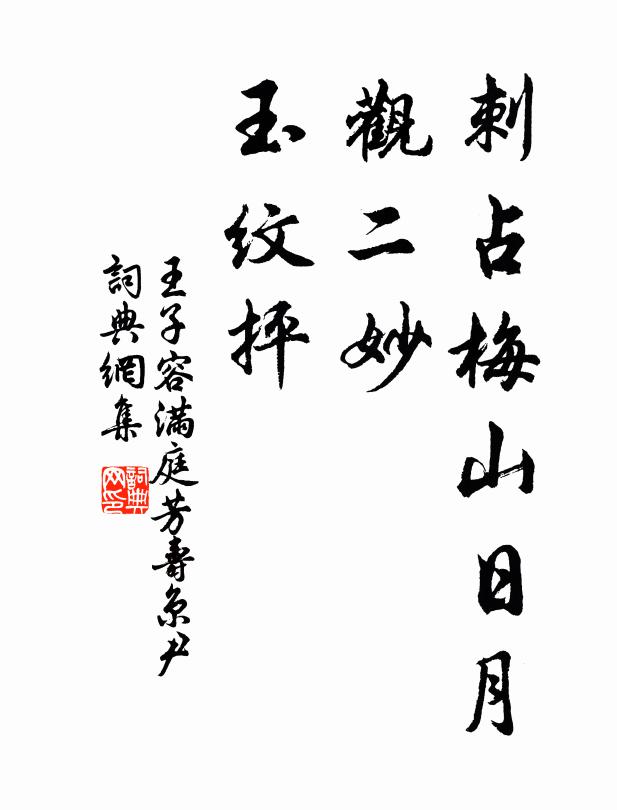 刺占梅山日月
觀二妙
玉紋抨
王子容滿庭芳壽京尹
詞典網集
詞典網印